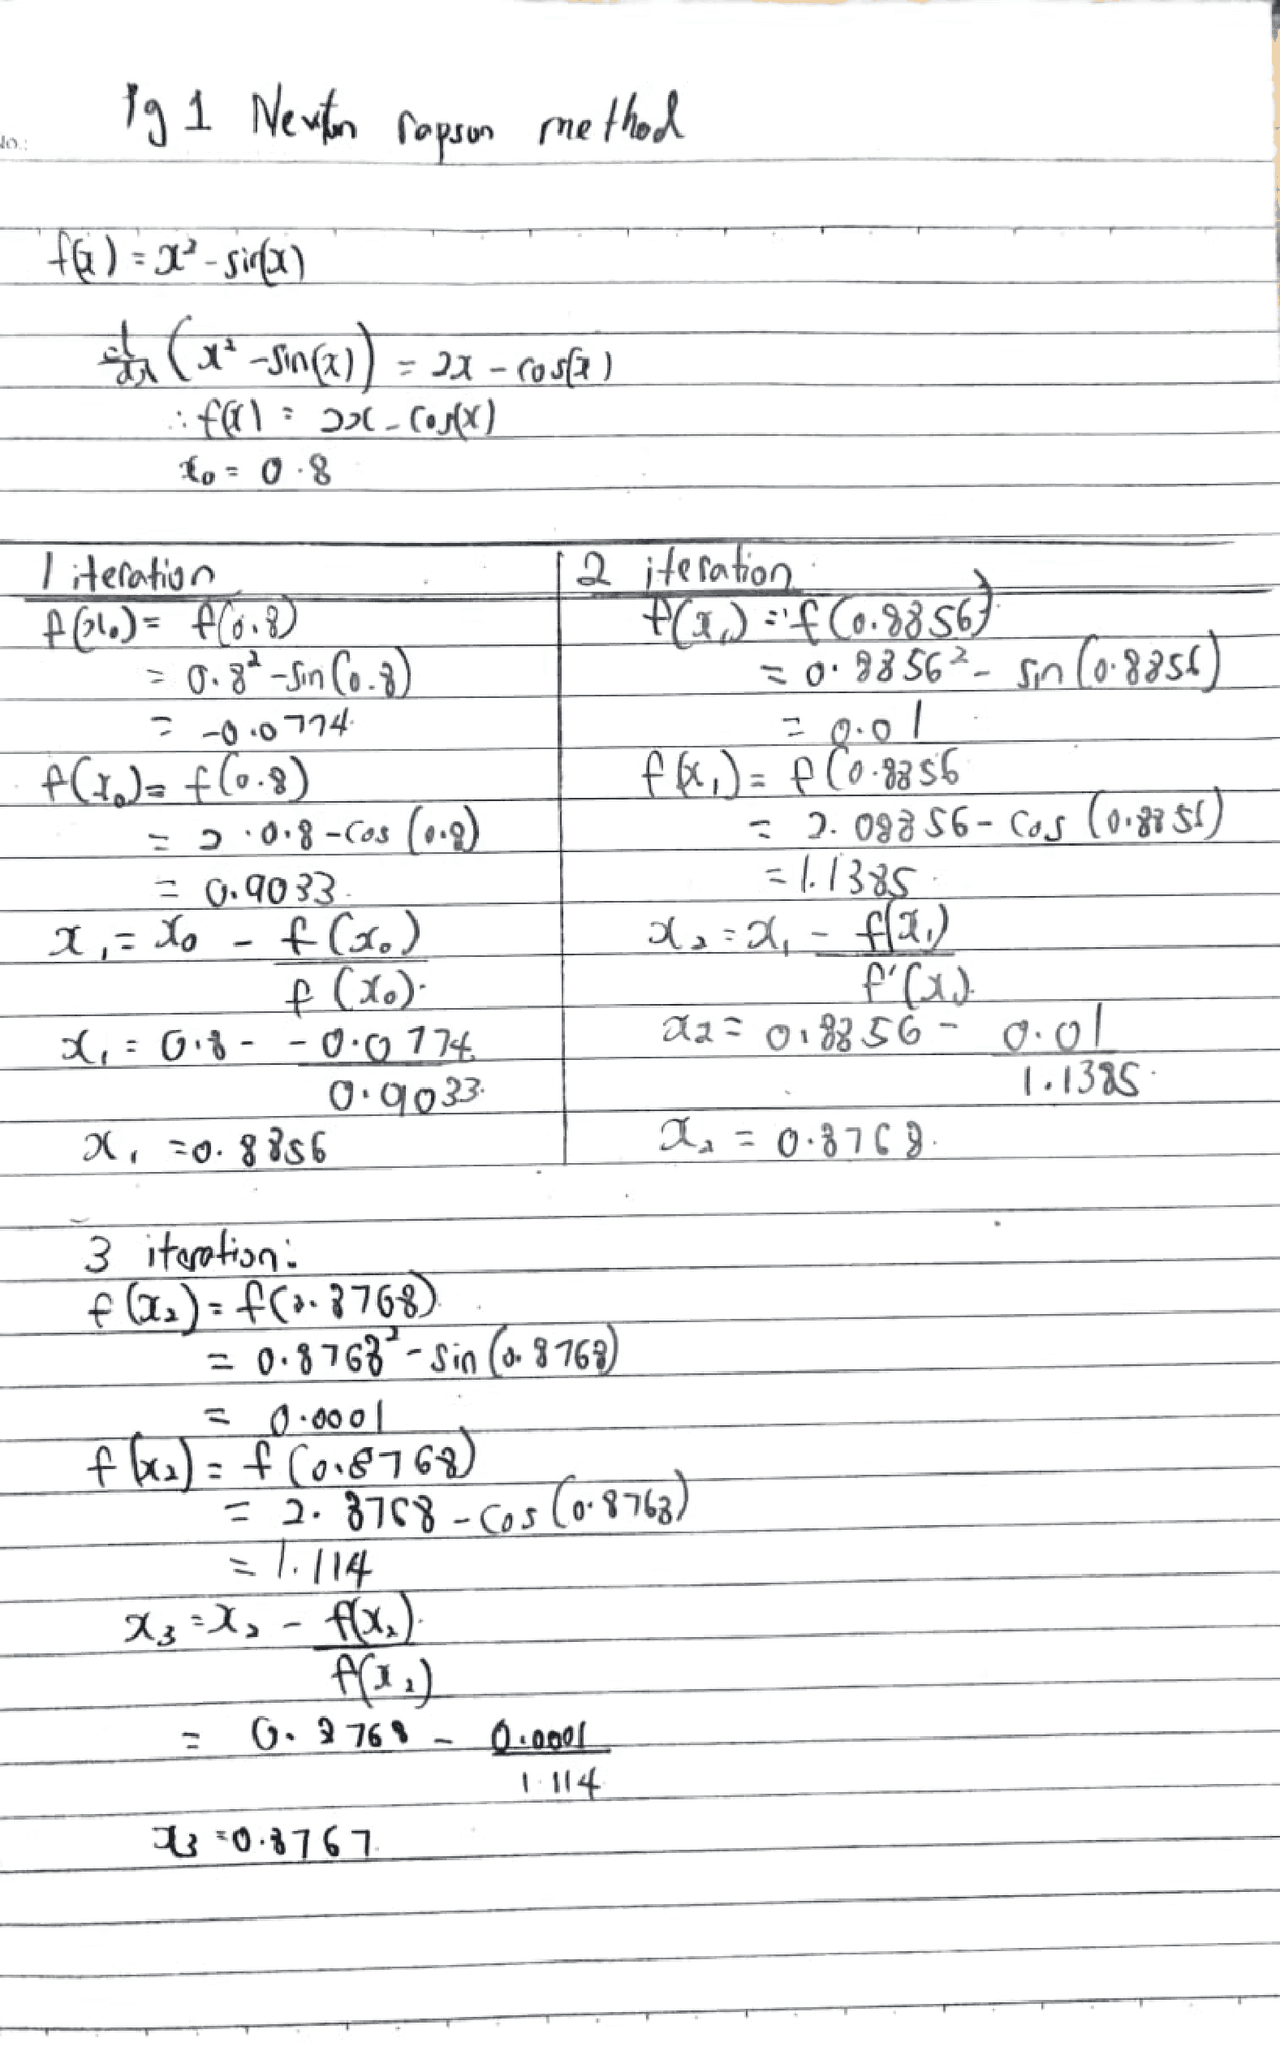 Pg 1 Newton rapson method
No.:
f(x) = x² - sin(x)
d/dx (x² - sin(x)) = 2x - cos(x)
∴ f(x) = 2x - cos(x)
x₀ = 0.8
1 iteration
f(x₀) = f(0.8)
= 0.8² - sin(0.8)
= -0.0774
f(x₀) = f(0.8)
= 2·0.8 - cos(0.8)
= 0.9033
x₁ = x₀ - f(x₀)
f(x₀)
x₁ = 0.8 - -0.0774
0.9033
x₁ = 0.8856
2 iteration
f(x₁) = f(0.8856)
= 0.8856² - sin(0.8856)
= 0.01
f(x₁) = f(0.8856
= 2.08856 - cos(0.8856)
= 1.1385
x₂ = x₁ - f(x₁)
f'(x₁)
x2 = 0.8856 - 0.01
1.1385
x₂ = 0.8768
3 iteration:
f(x₂) = f(0.8768)
= 0.8768² - sin(0.8768)
= 0.0001
f(x₂) = f(0.8768)
= 2.8768 - cos(0.8768)
= 1.114
x₃ = x₂ - f(x₂)
f(x₂)
= 0.8768 - 0.0001
1.114
x₃ = 0.8767